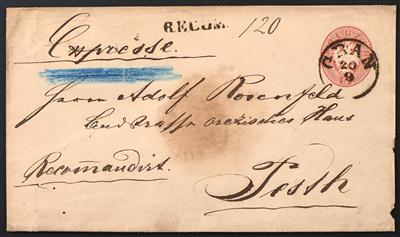 RECOM. 120
Expresse.
KREUZER
GRAN
20
9
Herrn Adolf Rosenfeld
Landstrasse Haus
Recomandirt.
Pesth